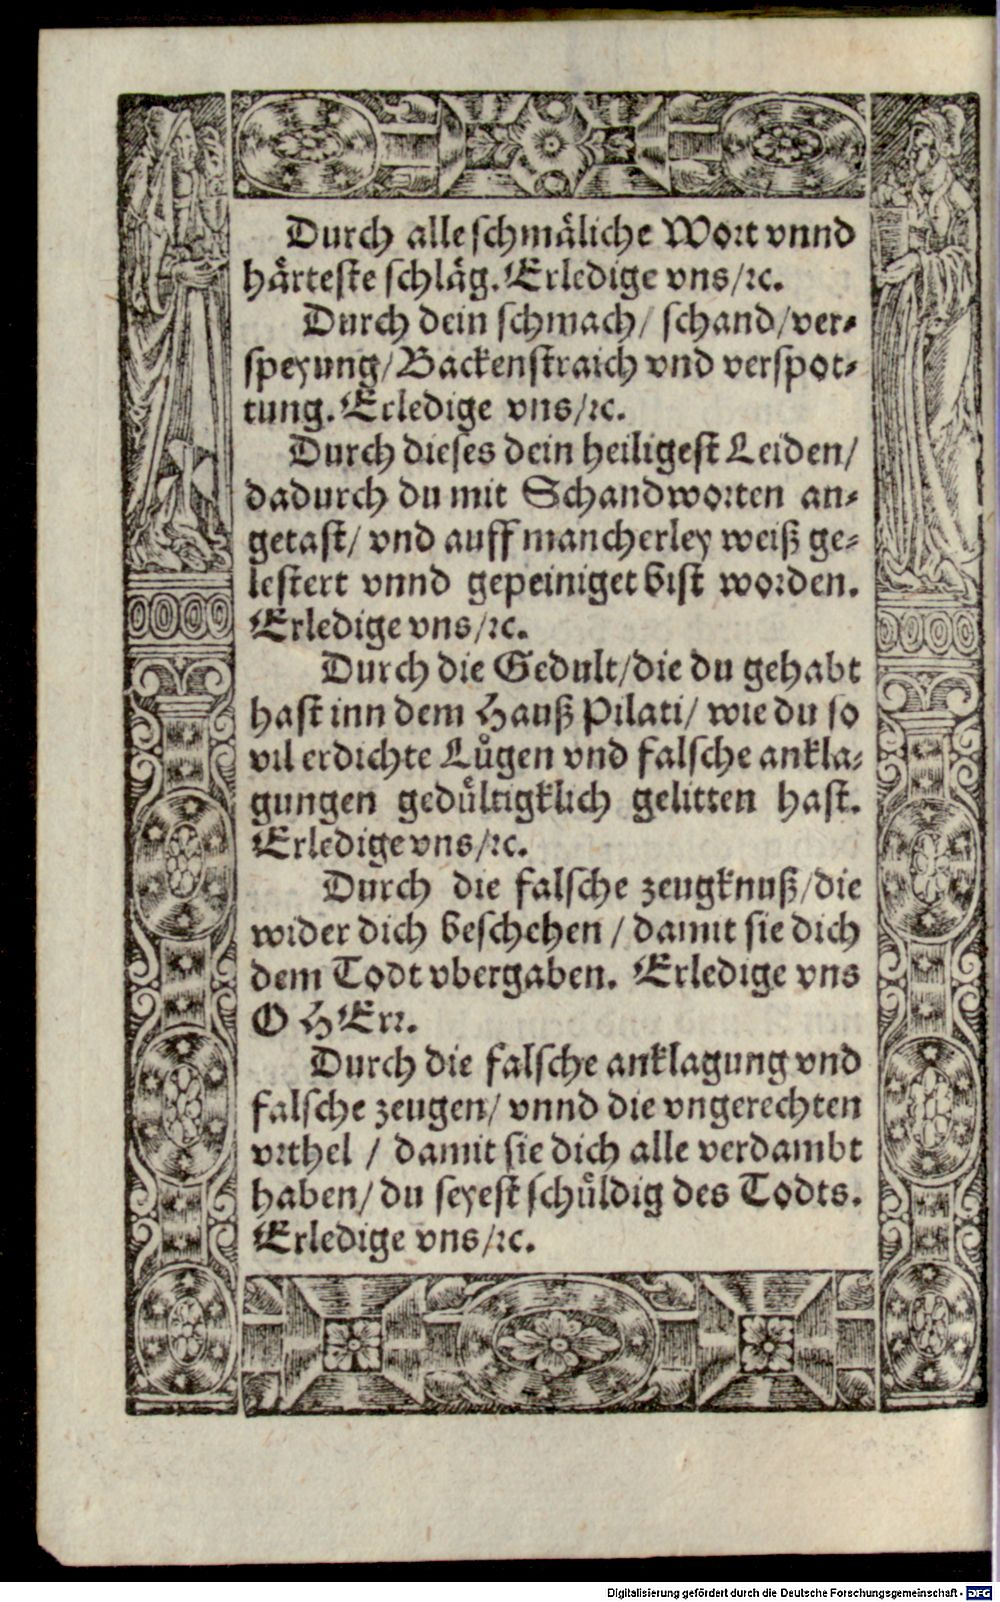 Durch alle schmäliche Wort vnnd
härteste schläg. Erledige vns/ꝛc.
Durch dein schmach/ schand/ver-
speyung/Backenstraich vnd verspot-
tung. Erledige vns/ꝛc.
Durch dieses dein heiligest Leiden/
dadurch du mit Schandworten an-
getast/ vnd auff mancherley weiß ge-
lestert vnnd gepeiniget bist worden.
Erledige vns/ꝛc.
Durch die Gedult/die du gehabt
hast inn dem Hauß Pilati/ wie du so
vil erdichte Lůgen vnd falsche ankla-
gungen gedültigklich gelitten hast.
Erledige vns/ꝛc.
Durch die falsche zeugknuß/die
wider dich beschehen / damit sie dich
dem Todt vbergaben. Erledige vns
O HErr.
Durch die falsche anklagung vnd
falsche zeugen/ vnnd die vngerechten
vrthel / damit sie dich alle verdambt
haben/ du seyest schüldig des Todts.
Erledige vns/ꝛc.
Digitalisierung gefördert durch die Deutsche Forschungsgemeinschaft - DFG